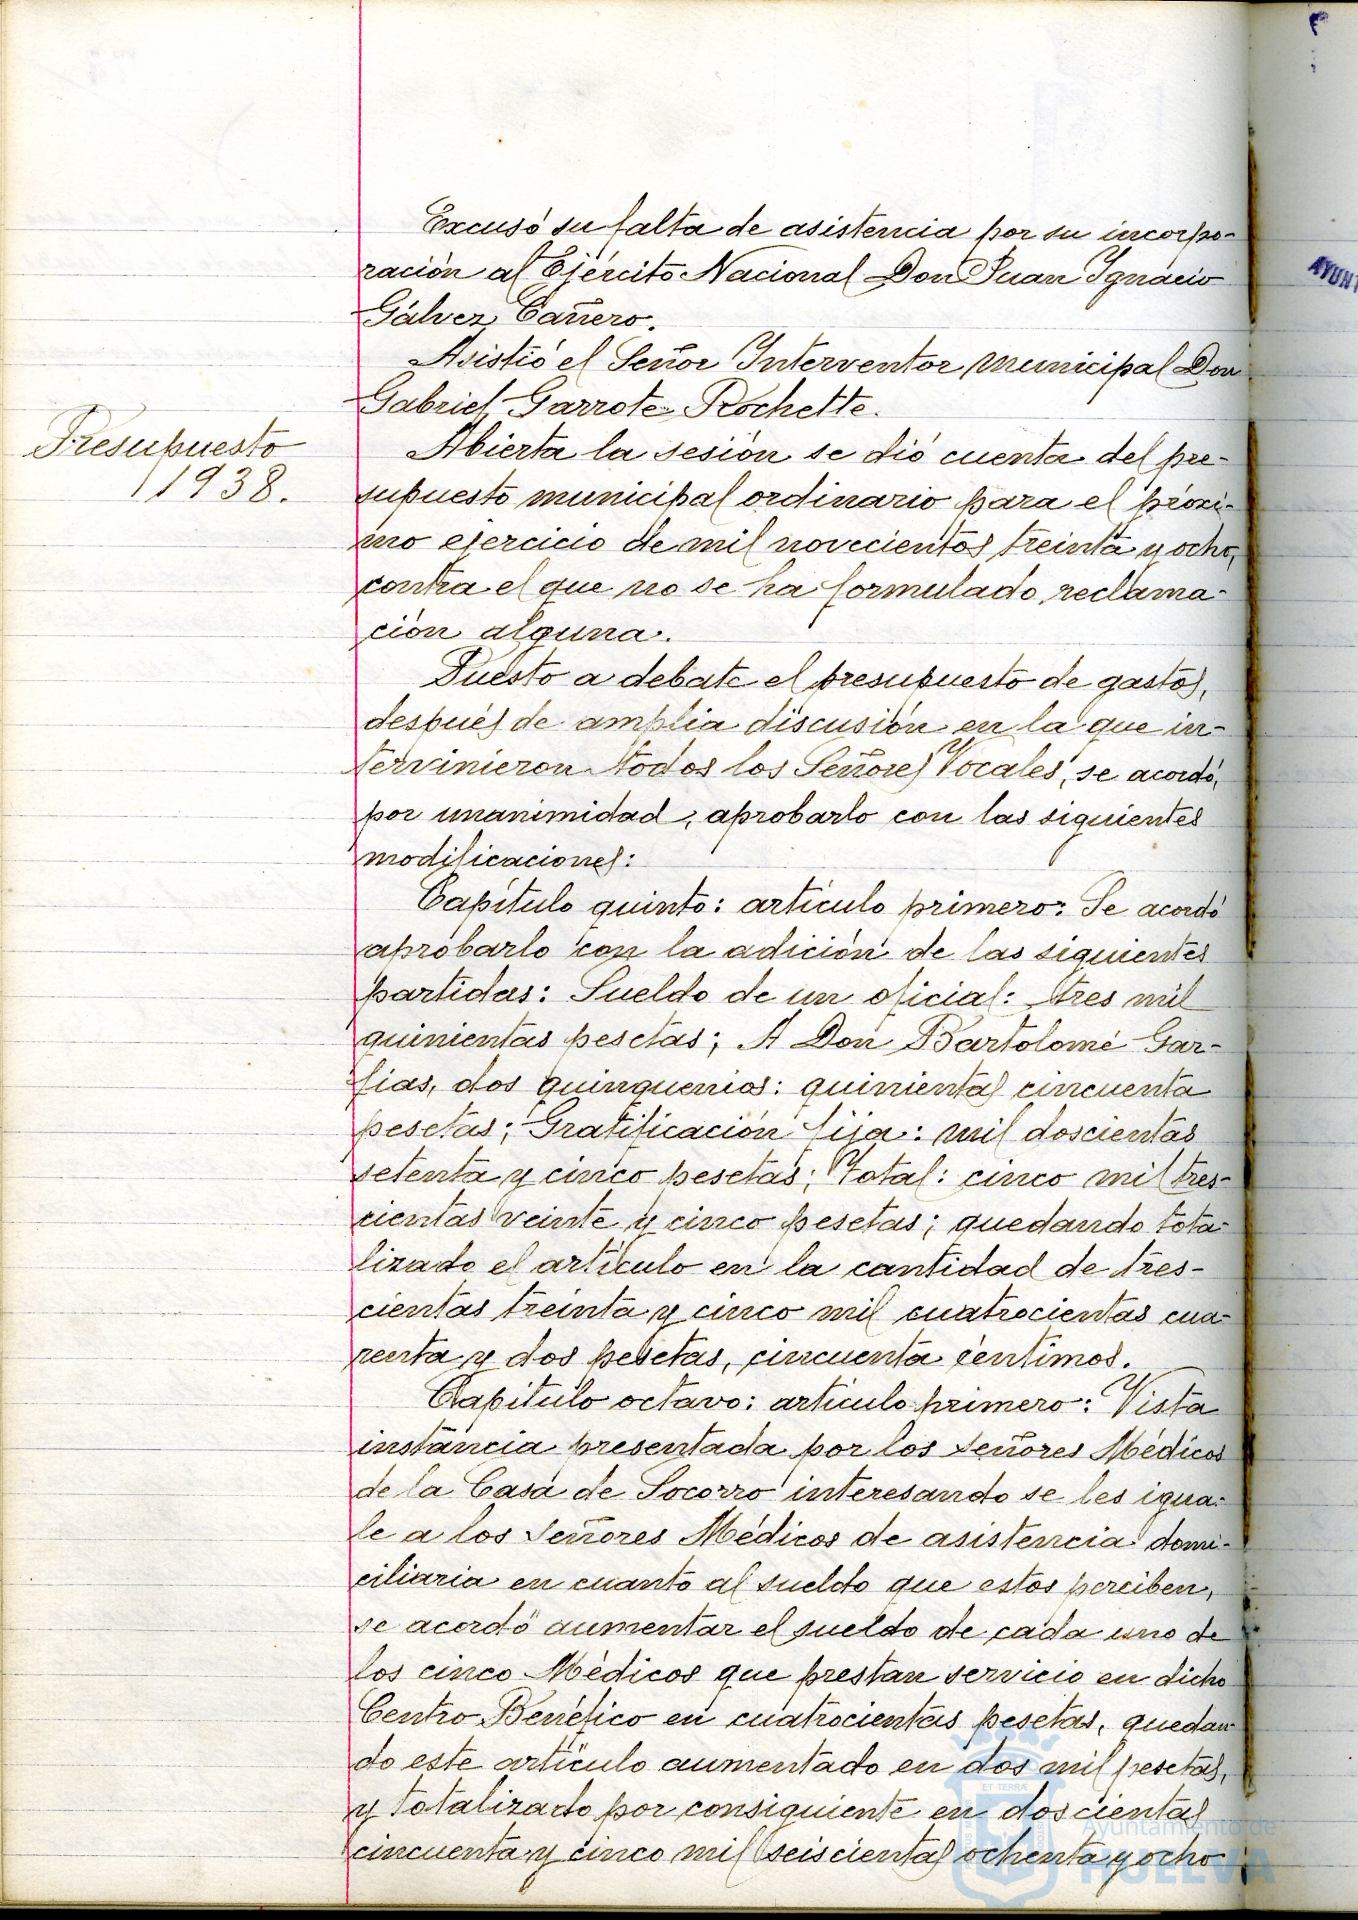 Excusó su falta de asistencia por su incorpo-
ración al Ejército Nacional Don Juan Ignacio
Gálvez Cañero.
Asistió el Señor Interventor municipal Don
Gabriel Garrote Rochette.
Presupuesto
1938.
Abierta la sesión se dió cuenta del pre-
supuesto municipal ordinario para el próxi-
mo ejercicio de mil novecientos treinta y ocho,
contra el que no se ha formulado reclama-
ción alguna.
Puesto a debate el presupuesto de gastos,
después de amplia discusión en la que in-
tervinieron todos los Señores Vocales, se acordó,
por unanimidad, aprobarlo con las siguientes
modificaciones:
Capítulo quinto: artículo primero: Se acordó
aprobarlo con la adición de las siguientes
partidas: Sueldo de un oficial: tres mil
quinientas pesetas; A Don Bartolomé Gar-
fias, dos quinquenios: quinientas cincuenta
pesetas; Gratificación fija: mil doscientas
setenta y cinco pesetas; Total: cinco mil tres-
cientas veinte y cinco pesetas; quedando tota-
lizado el artículo en la cantidad de tres-
cientas treinta y cinco mil cuatrocientas cua-
renta y dos pesetas, cincuenta céntimos.
Capítulo octavo: artículo primero: Vista
instancia presentada por los señores Médicos
de la Casa de Socorro interesando se les igua-
le a los señores Médicos de asistencia domi-
ciliaria en cuanto al sueldo que estos perciben,
se acordó aumentar el sueldo de cada uno de
los cinco Médicos que prestan servicio en dicho
Centro Benéfico en cuatrocientas pesetas, quedan-
do este artículo aumentado en dos mil pesetas,
y totalizado por consiguiente en doscientas
cincuenta y cinco mil seiscientas ochenta y ocho
AYUNT
ET TERRÆ
Ayuntamiento de
HUELVA